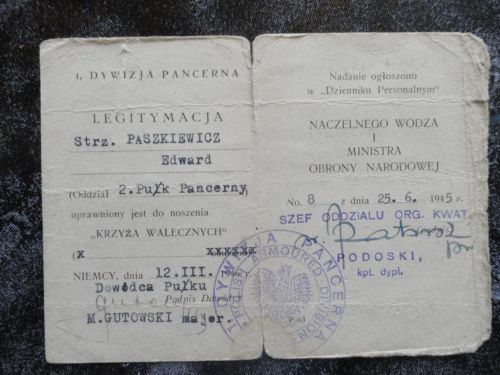 1. DYWIZJA PANCERNA
LEGITYMACJA
Strz. PASZKIEWICZ
Edward
(Oddział 2.Pułk Pancerny)
uprawniony jest do noszenia
"KRZYŻA WALECZNYCH"
(x xxxxxx
NIEMCY, dnia 12.III.
Dowódca Pułku
Podpis
M.GUTOWSKI major.
Nadanie ogłoszono
w „Dzienniku Personalnym"
NACZELNEGO WODZA
I
MINISTRA
OBRONY NARODOWEJ
No. 8 z dnia 25. 6. 1945 r.
SZEF ODDZIALU ORG. KWAT.
PODOSKI,
kpt. dypl.
1. DYWIZJA PANCERNA
POLISH ARMOURED DIVISION